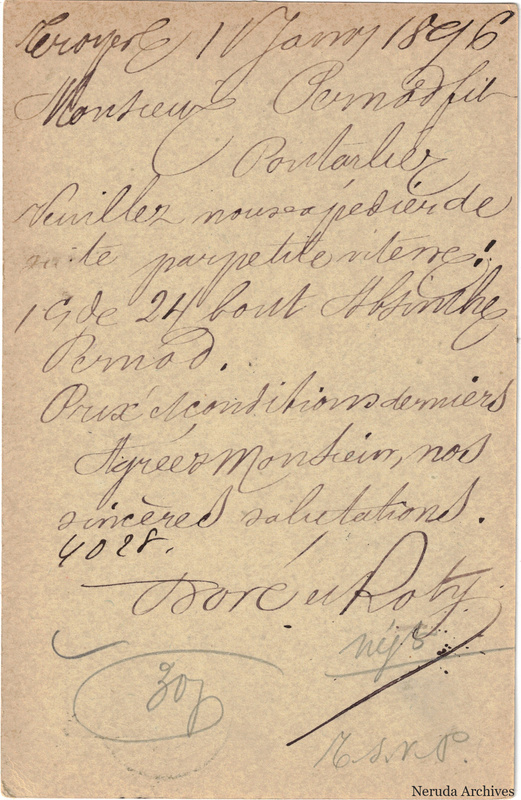 Troyes 1 Janv 1896
Monsieur Pernod fils
Pontarlier
Veuillez nous expédier de
suite par petite vitesse:
1 c de 24 bout Absinthe
Pernod.
Prix & conditions derniers
Agréez Monsieur, nos
sincères salutations.
4028.
Doré et Roty
30j
T.S.V.P.
Neruda Archives